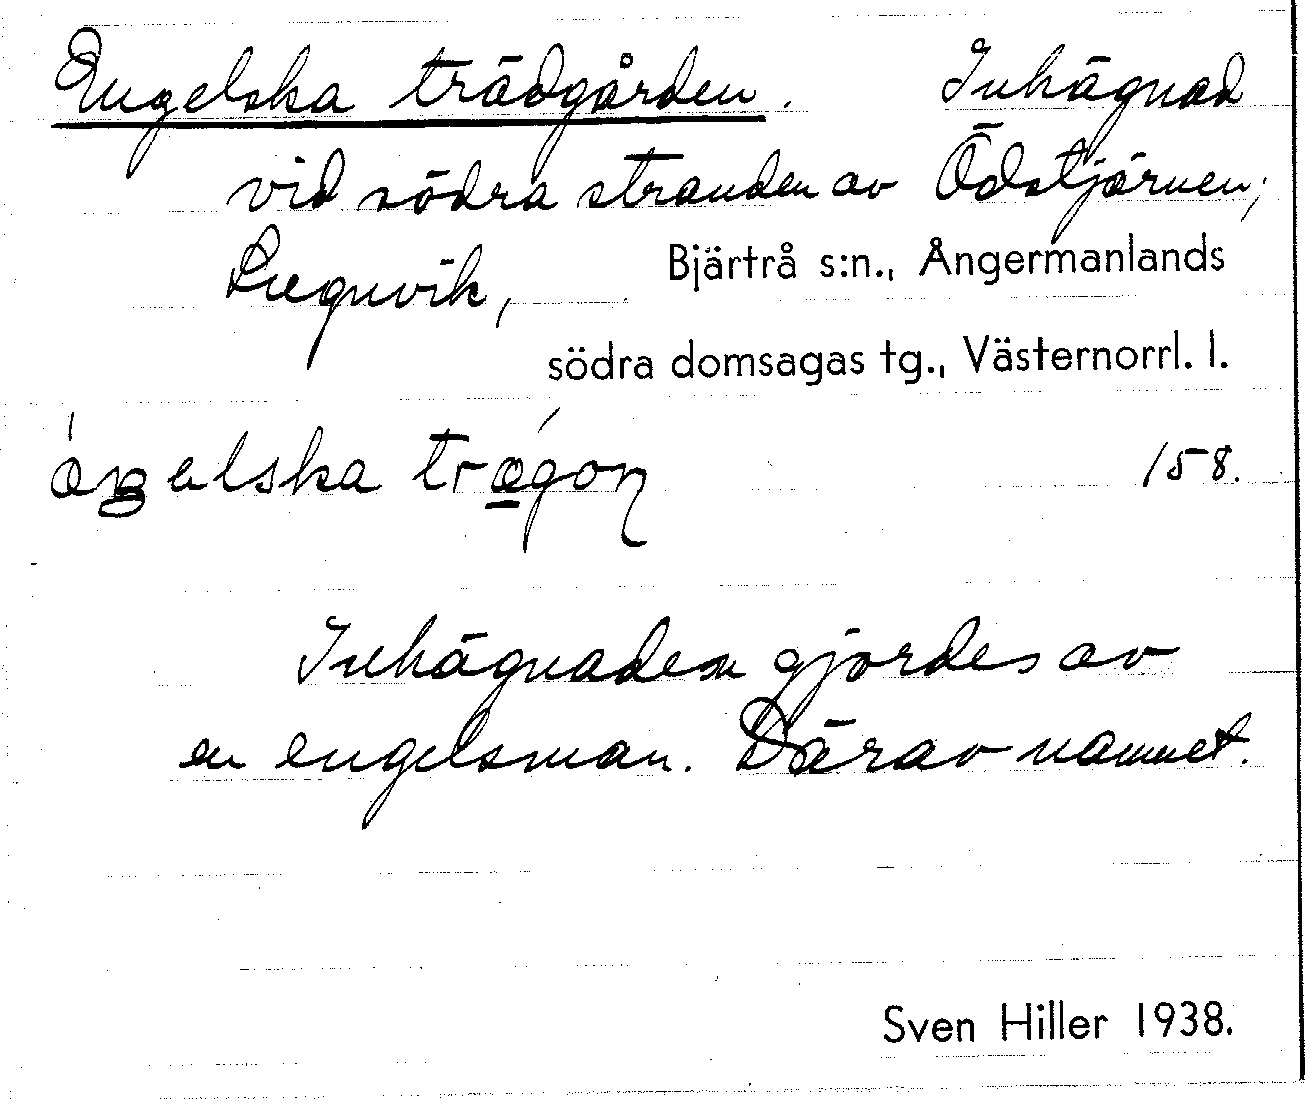 Engelska trädgården. Inhägnad
vid södra stranden av Ödstjärnen,
Lugnvik, Bjärtrå s:n., Ångermanlands
södra domsagas tg., Västernorrl. l.
158.
Inhägnaden gjordes av
en engelsman. Därav namnet.
Sven Hiller 1938.